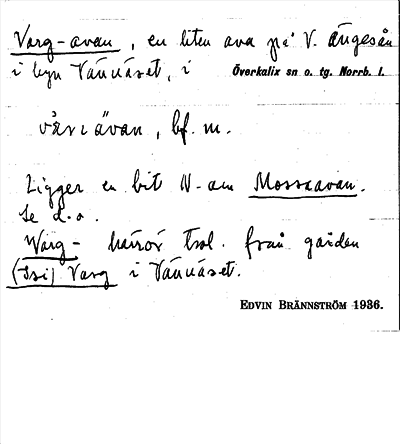 Varg-avan, en liten ava på V. Ängesån
i byn Vännäset, i Överkalix sn o. tg. Norrb. l.
våriävan, bf. m.
Ligger en bit N-om Mossaavan.
Se d.o.
Warg- härrör trol. från gården
(Isi) Varg i Vännäset.
EDVIN BRÄNNSTRÖM 1936.